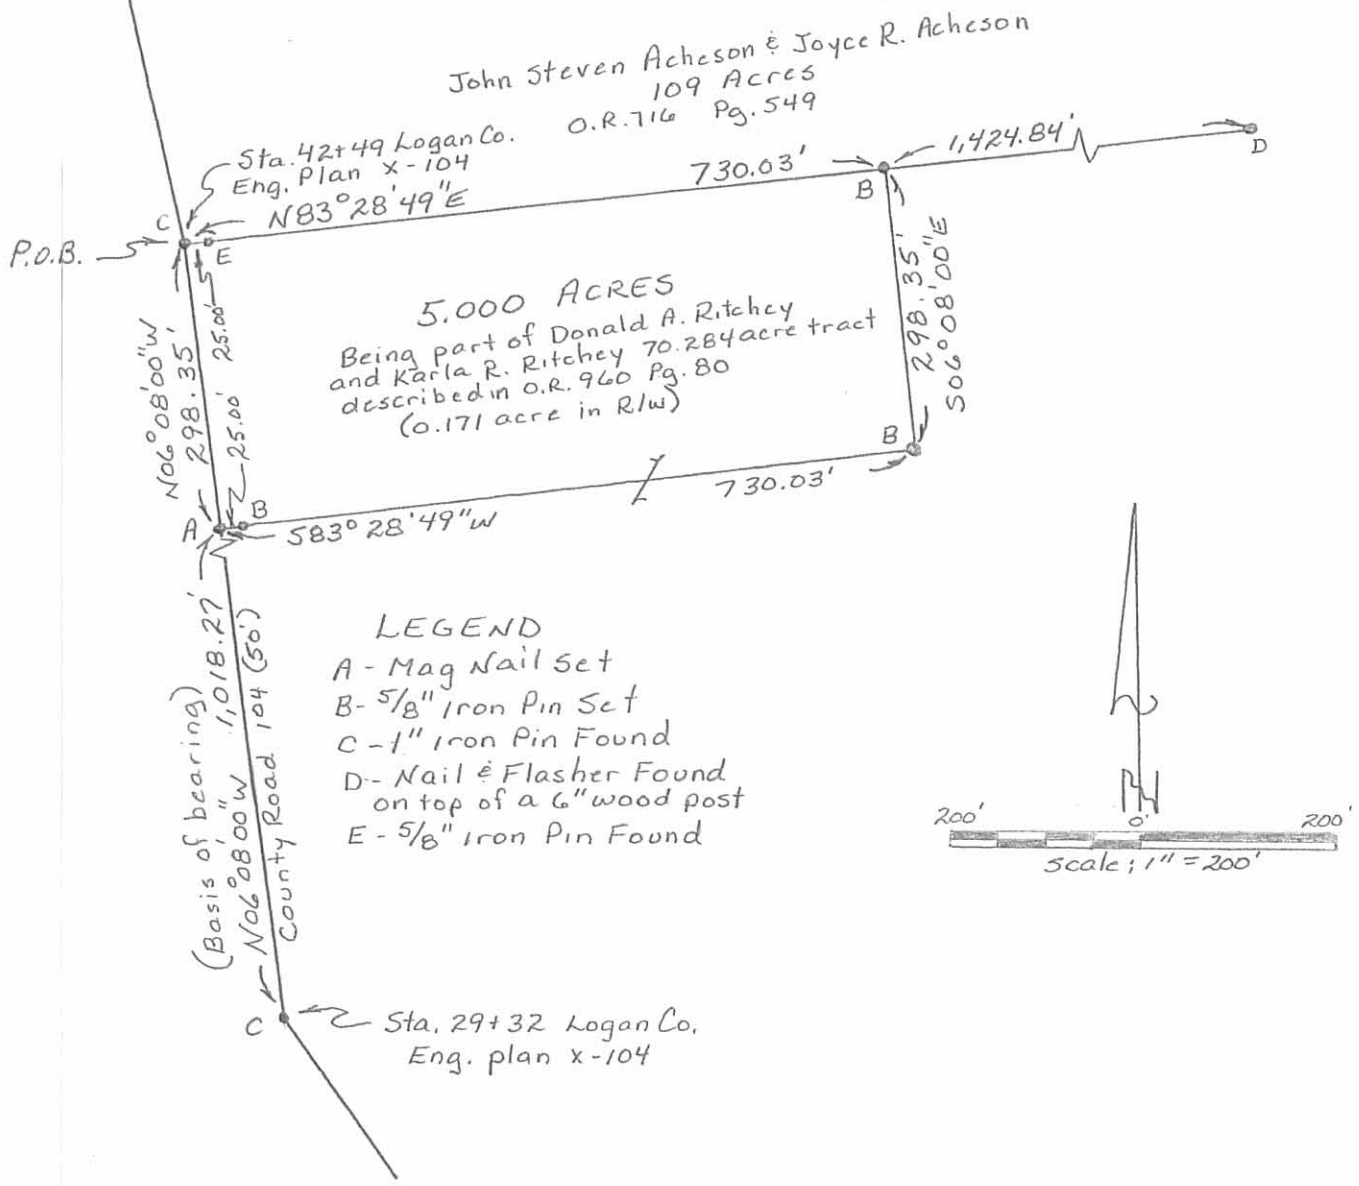 John Steven Acheson & Joyce R. Acheson
109 Acres
O.R.716 Pg.549
Sta.42+49 Logan Co.
Eng. Plan x-104
N83°28'49"E
730.03'
1,424.84'
D
B
C
E
P.O.B.
5.000 ACRES
Being part of Donald A. Ritchey
and Karla R. Ritchey 70.284 acre tract
described in O.R. 960 Pg. 80
(0.171 acre in R/W)
N06°08'00"W
298.35'
25.00'
25.00'
298.35'
S06°08'00"E
B
730.03'
A
B
S83°28'49"W
(Basis of bearing)
N06°08'00W" 1,018.27'
County Road 104 (50')
LEGEND
A - Mag Nail Set
B- 5/8" Iron Pin Set
C - 1" Iron Pin Found
D- Nail & Flasher Found
on top of a 6" wood post
E - 5/8" Iron Pin Found
N
200' 0' 200'
scale; 1" = 200'
C
Sta. 29+32 Logan Co.
Eng. plan x-104